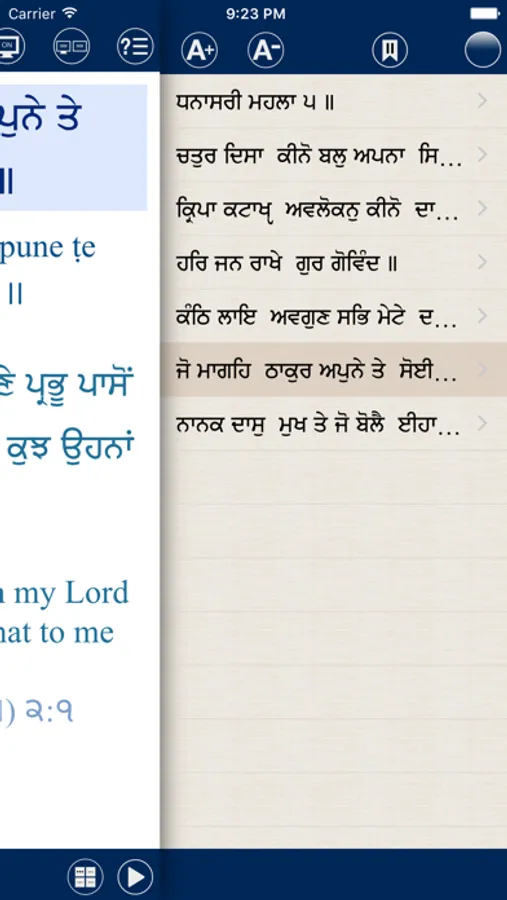 Carrier 9:23 PM
ON ?
A+ A-
ਪੁਨੇ ਤੇ
॥
pune ṭe
॥
ਣੇ ਪ੍ਰਭੂ ਪਾਸੋਂ
ਕੁਝ ਉਹਨਾਂ
my Lord
hat to me
) ੨:੧
ਧਨਾਸਰੀ ਮਹਲਾ ੫ ॥
ਚਤੁਰ ਦਿਸਾ ਕੀਨੋ ਬਲੁ ਅਪਨਾ ਸਿ...
ਕ੍ਰਿਪਾ ਕਟਾਖੵ ਅਵਲੋਕਨੁ ਕੀਨੋ ਦਾ...
ਹਰਿ ਜਨ ਰਾਖੇ ਗੁਰ ਗੋਵਿੰਦ ॥
ਕੰਠਿ ਲਾਇ ਅਵਗੁਣ ਸਭਿ ਮੇਟੇ ਦ...
ਜੋ ਮਾਗਹਿ ਠਾਕੁਰ ਅਪੁਨੇ ਤੇ ਸੋਈ...
ਨਾਨਕ ਦਾਸੁ ਮੁਖ ਤੇ ਜੋ ਬੋਲੈ ਈਹਾ...